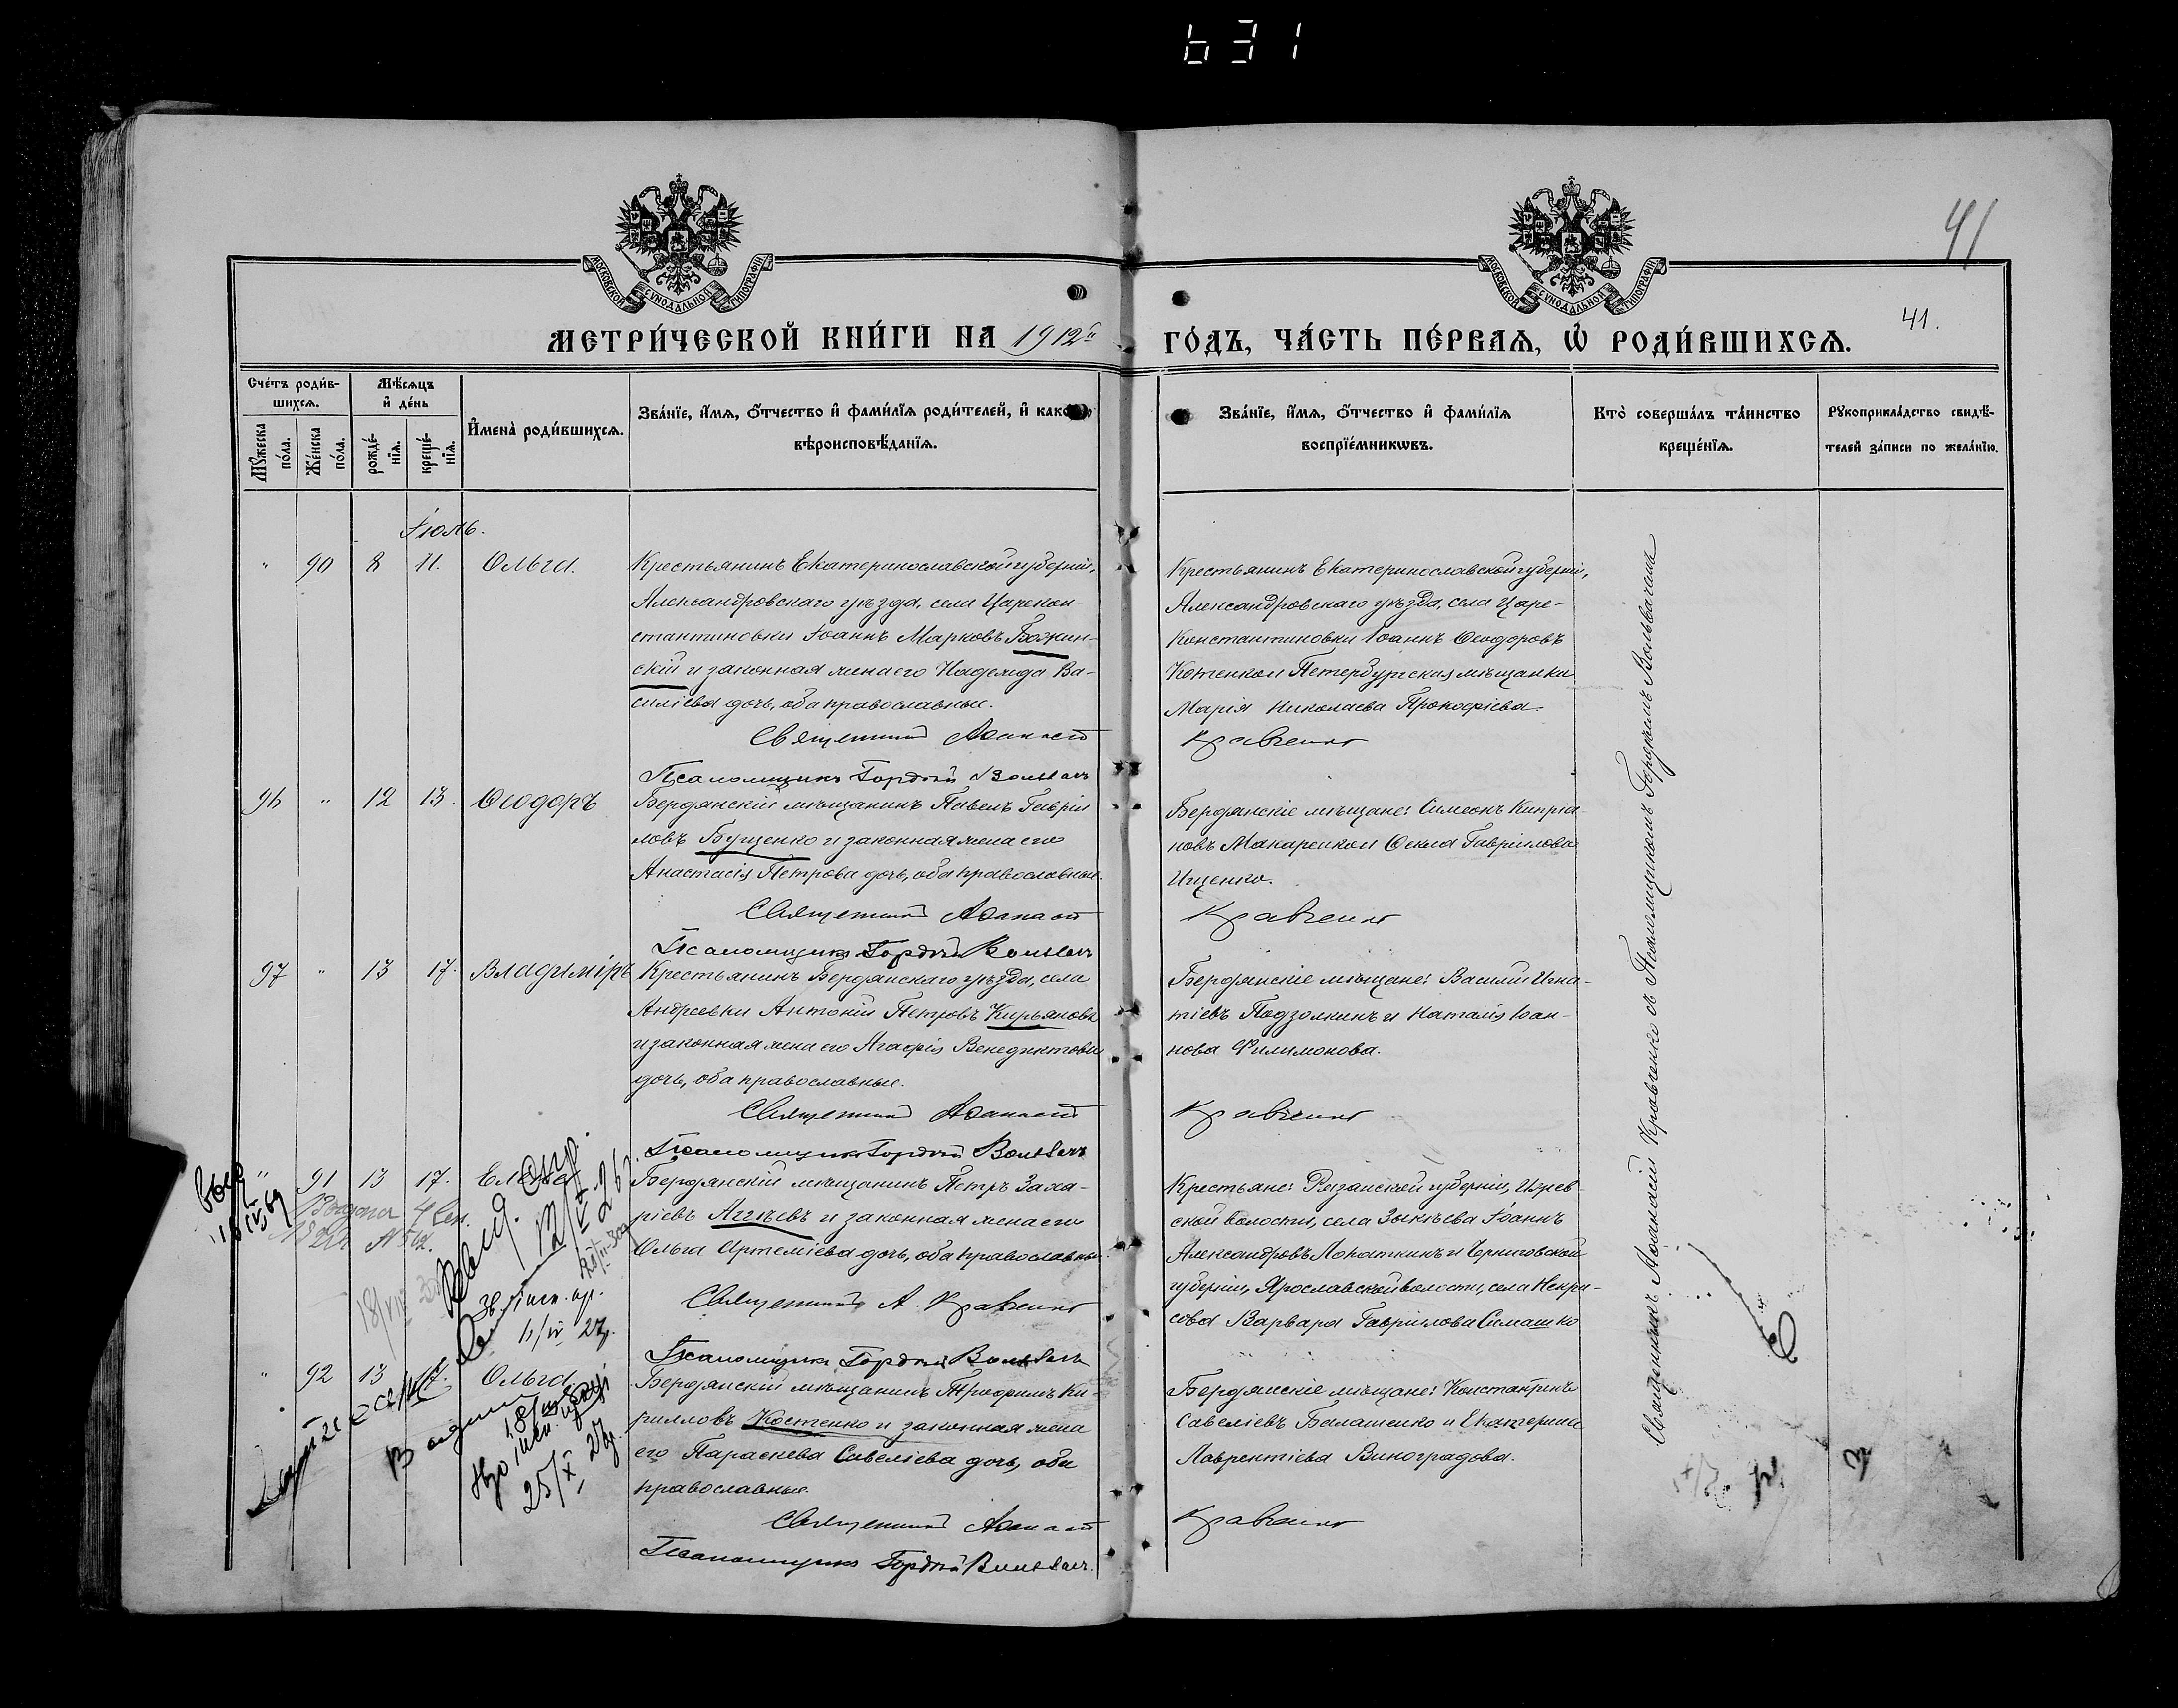 631
41
МОСКОВСКОЙ СѴНОДАЛЬНОЙ ТИПОГРАФІИ
МОСКОВСКОЙ СѴНОДАЛЬНОЙ ТИПОГРАФІИ
МЕТРИ́ЧЕСКОЙ КНИ́ГИ НА 1912й ГО́ДЪ, ЧА́СТЬ ПЕ́РВАѦ, Ѡ҆ РОДИ́ВШИХСѦ. 41.
Сче́тъ роди́в-
шихсѧ.
Мѣ́сѧцъ
и҆ де́нь
Мꙋ́жеска по́ла.
Же́нска по́ла.
рожде́-
нїѧ.
креще́-
нїѧ.
И҆мена̀ роди́вшихсѧ.
Зва́нїе, и҆́мѧ, ѻ҆́тчество и҆ фами́лїѧ роди́телей, и҆ како́гѡ
вѣроисповѣ́данїѧ.
Зва́нїе, и҆́мѧ, ѻ҆́тчество и҆ фами́лїѧ
воспрїе́мникѡвъ.
Кто̀ соверша́лъ та́инство
креще́нїѧ.
Рꙋкоприкла́дство свидѣ́-
телей за́писи по жела́нїю.
Іюль.
" 90 8 11. Ольга.
Крестьянинъ Екатеринославской губерніи,
Александровскаго уѣзда, села Царекон-
стантиновки Іоаннъ Марковъ Божин-
скій и законная жена его Надежда Ва-
силіева дочь, оба православные.
Священникъ Аѳанасій
Псаломщикъ Гордій
Крестьянинъ Екатеринославской губерніи,
Александровскаго уѣзда, села Царе-
Константиновки Іоаннъ Ѳеодоровъ
Котенко и Петербургская мѣщанка
Марія Николаева Прокофіева.
Кравченко
96 " 12 13. Ѳеодоръ
Бердянскій мѣщанинъ Павелъ Гаврии-
ловъ Бущенко и законная жена его
Анастасія Петрова дочь, оба православные.
Священникъ Аѳанасій
Псаломщикъ Гордій
Бердянскіе мѣщане: Симеонъ Кипріа-
новъ Макаренко и Ѳекла Гавриилова
Ищенко.
Кравченко
97 " 13 17. Владиміръ
Крестьянинъ Бердянскаго уѣзда, села
Андреевки Антоній Петровъ Кирьяновъ
и законная жена его Агафія Венедиктова
дочь, оба православные.
Священникъ Аѳанасій
Псаломщикъ Гордій
Бердянскіе мѣщане: Василій Игна-
тіевъ Подзолкинъ и Наталія Іоан-
нова Филимонова.
Кравченко
" 91 13 17. Елена
Бердянскій мѣщанинъ Петръ Заха-
ріевъ Аггѣевъ и законная жена его
Ольга Артеміева дочь, оба православные.
Священникъ А. Кравченко
Псаломщикъ Гордій
Крестьяне: Рязанской губерніи,
ской волости, села Зыкѣева Іоаннъ
Александровъ Лопаткинъ и Черниговской
губерніи, Ярославской волости, села Некра-
сова Варвара Гавриилова Симашко
" 92 13 17. Ольга.
Бердянскій мѣщанинъ Трофимъ Ки-
рилловъ Костенко и законная жена
его Параскева Савеліева дочь, оба
православные.
Священникъ Аѳанасій
Псаломщикъ Гордій
Бердянскіе мѣщане: Константинъ
Савеліевъ Балашенко и Екатерина
Лаврентіева Виноградова.
Кравченко
Священникъ Аѳанасій Кравченко съ Псаломщикомъ Гордіемъ